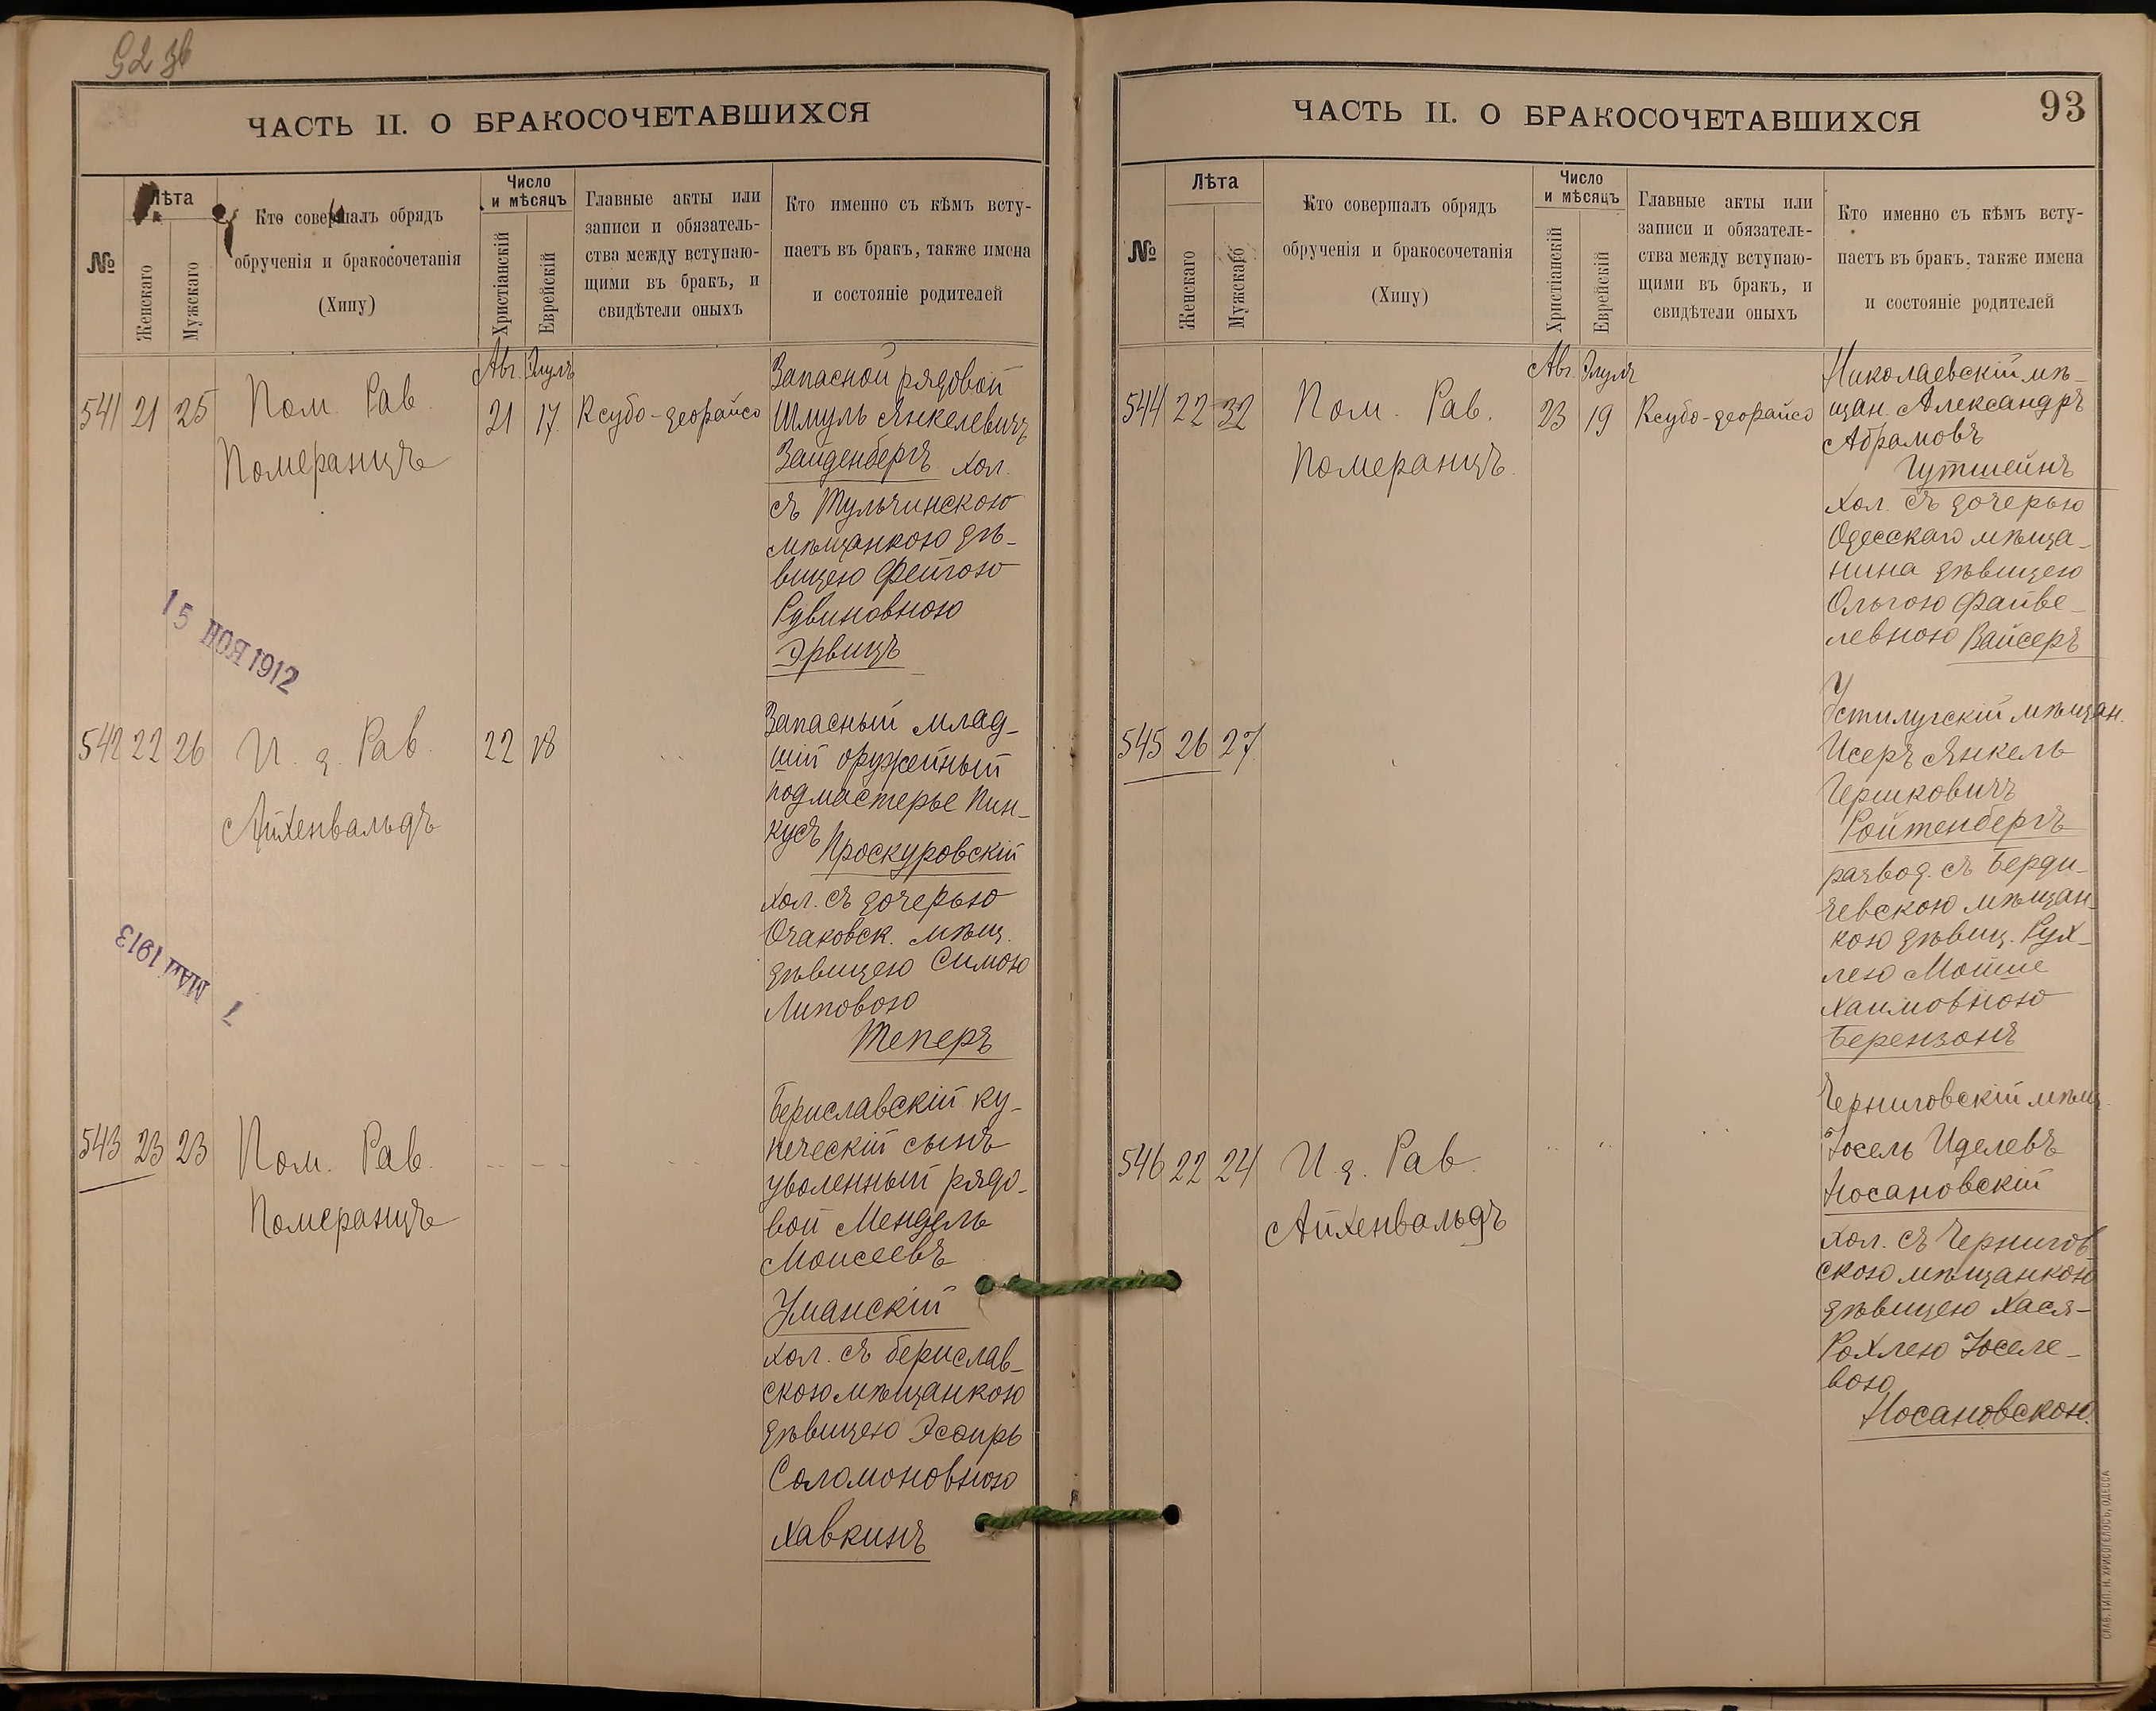 92 зв
ЧАСТЬ II. О БРАКОСОЧЕТАВШИХСЯ
№
Лѣта
Женскаго
Мужскаго
Кто совершалъ обрядъ
обрученія и бракосочетанія
(Хипу)
Число
и мѣсяцъ
Христіанскій
Еврейскій
Главные акты или
записи и обязатель-
ства между вступаю-
щими въ бракъ, и
свидѣтели оныхъ
Кто именно съ кѣмъ всту-
паетъ въ бракъ, также имена
и состояніе родителей
541 21 25
Пом. Рав.
Померанцъ
Авг. Элулъ
21 17
Ксубо-деорайсо
Запасной рядовой
Шмуль Янкелевичъ
Зайденбергъ хол.
съ Тульчинскою
мѣщанкою дѣ-
вицею Фейгою
Рувиновною
Эрвицъ
15 НОЯ 1912
542 22 26
И. д. Рав.
Айхенвальдъ
22 18
Запасный млад-
шій оружейный
подмастерье Пин-
кусъ Проскуровскій
хол. съ дочерью
Очаковск. мѣщ.
дѣвицею Симою
Липовою
Теперъ
1 МАЙ 1913
543 23 23
Пом. Рав.
Померанцъ
Бериславскій ку-
печескій сынъ
уволенный рядо-
вой Мендель
Моисеевъ
Уманскій
хол. съ берислав-
скою мѣщанкою
дѣвицею Эсѳирь
Соломоновною
Хавкинъ
ЧАСТЬ II. О БРАКОСОЧЕТАВШИХСЯ
93
№
Лѣта
Женскаго
Мужскаго
Кто совершалъ обрядъ
обрученія и бракосочетанія
(Хипу)
Число
и мѣсяцъ
Христіанскій
Еврейскій
Главные акты или
записи и обязатель-
ства между вступаю-
щими въ бракъ, и
свидѣтели оныхъ
Кто именно съ кѣмъ всту-
паетъ въ бракъ, также имена
и состояніе родителей
544 22 32
Пом. Рав.
Померанцъ.
Авг. Элулъ
23 19
Ксубо-деорайсо
Николаевскій мѣ-
щан. Александръ
Абрамовъ
Гутшейнъ
хол. съ дочерью
Одесскаго мѣща-
нина дѣвицею
Ольгою Файве-
левною Вайсеръ
545 26 27
Устилугскій мѣщан.
Исеръ Янкель
Гершковичъ
Ройтенбергъ
развод. съ Берди-
чевскою мѣщан-
кою дѣвиц. Рух-
лею Мошие
Хаимовною
Берензонъ
546 22 24
И. д. Рав.
Айхенвальдъ
Черниговскій мѣщ.
Іосель Иделевъ
Носановскій
хол. съ Чернигов-
скою мѣщанкою
дѣвицею Хася-
Рохлею Іоселе-
вою
Носановскою.
СЛАВ. ТИП. Н. ХРИСОГЕЛОСЪ, ОДЕССА